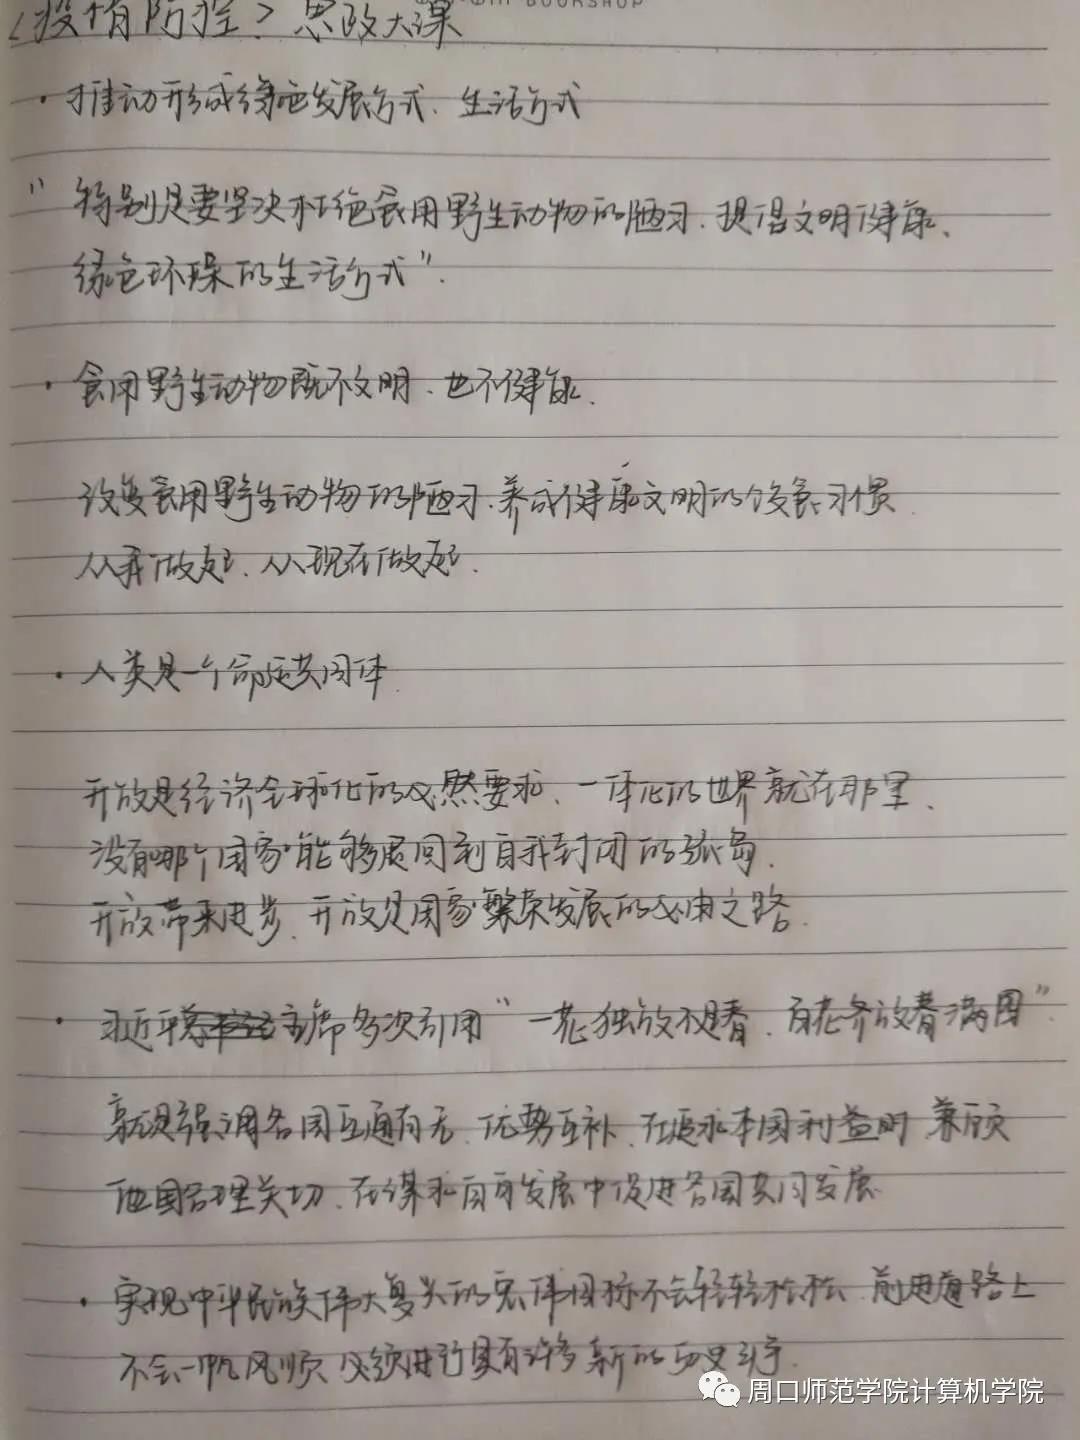 BOOKSHOP
<疫情防控>思政大课
· 推动形成绿色发展方式、生活方式
"特别是要坚决杜绝食用野生动物的陋习、提倡文明健康、
绿色环保的生活方式".
· 食用野生动物既不文明、也不健康.
改变食用野生动物的陋习、养成健康文明的饮食习惯
从我做起、从现在做起.
· 人类是一个命运共同体
开放是经济全球化的必然要求、一体化的世界就在那里、
没有哪个国家能够退回到自我封闭的孤岛.
开放带来进步、开放是国家繁荣发展的必由之路.
· 习近平主席多次引用"一花独放不是春、百花齐放春满园".
就是强调各国互通有无、优势互补、在追求本国利益时兼顾
他国合理关切、在谋求自身发展中促进各国共同发展
· 实现中华民族伟大复兴的宏伟目标不会轻轻松松、前进道路上
不会一帆风顺、必须进行具有许多新的历史斗争.
周口师范学院计算机学院